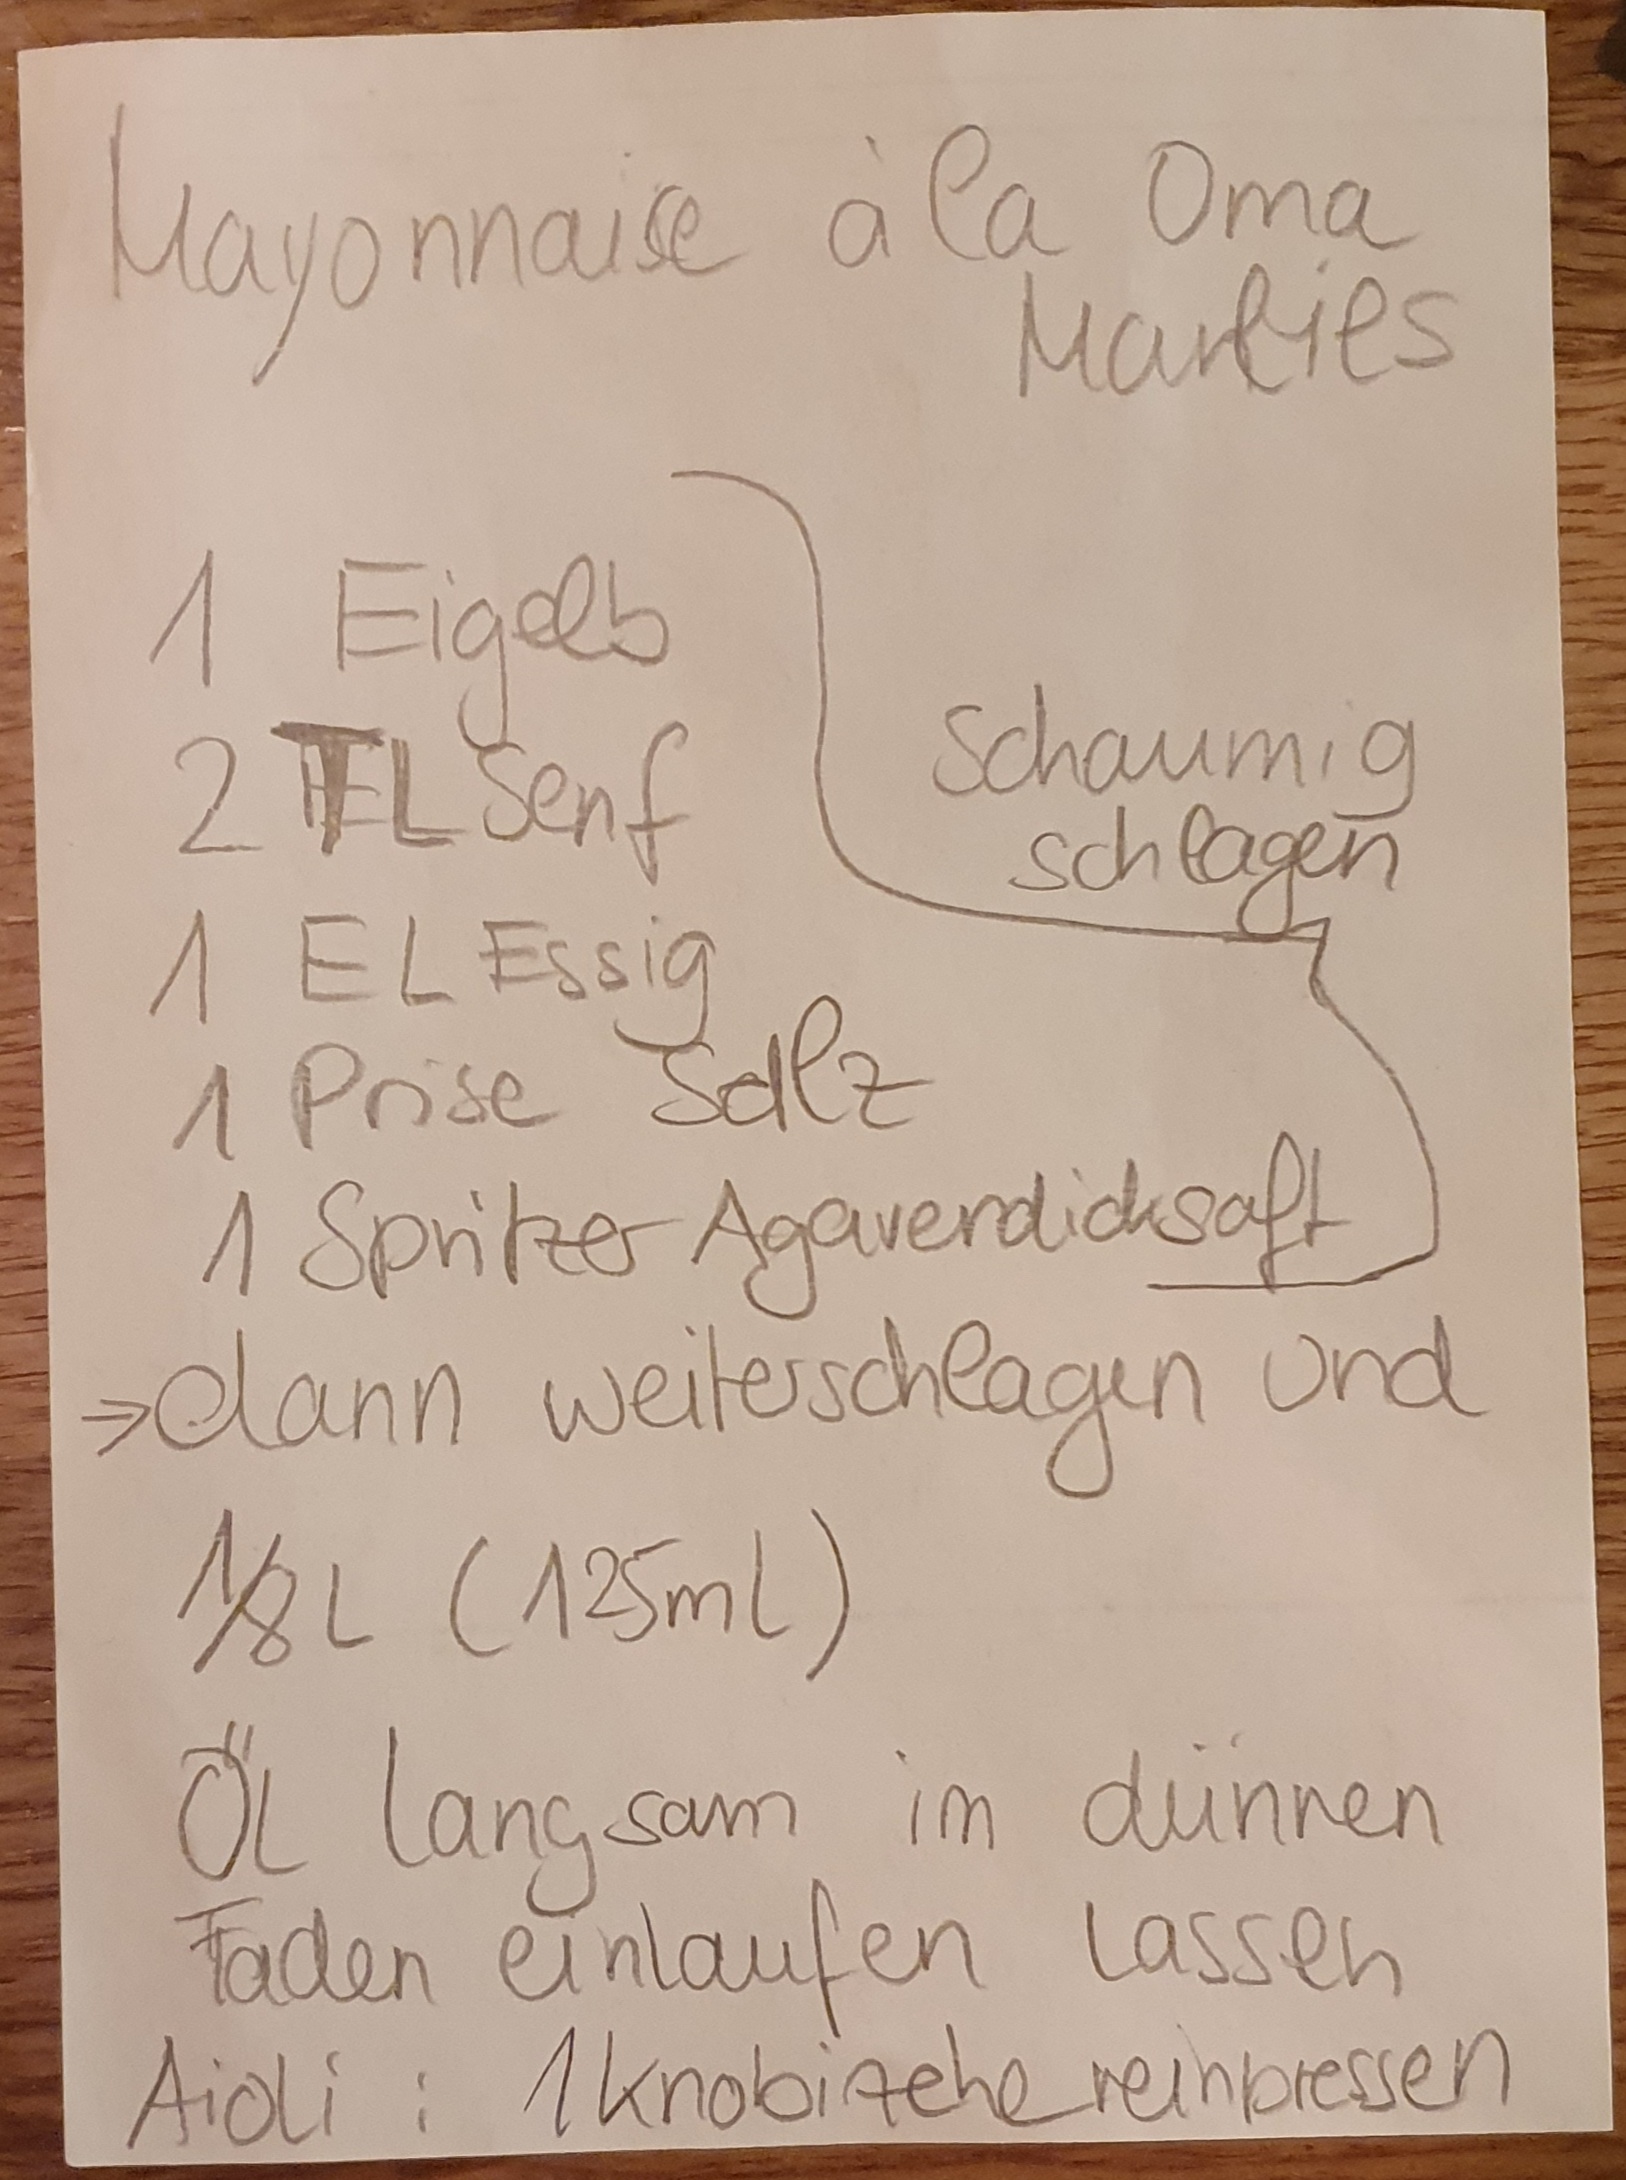 Mayonnaise à la Oma
Marlies
1 Eigelb
2 TL Senf
schaumig
schlagen
1 EL Essig
1 Prise Salz
1 Spritzer Agavendicksaft
→ dann weiterschlagen und
1/8 L (125ml)
Öl langsam im dünnen
Faden einlaufen lassen
Aioli : 1 Knobizehe reinpressen